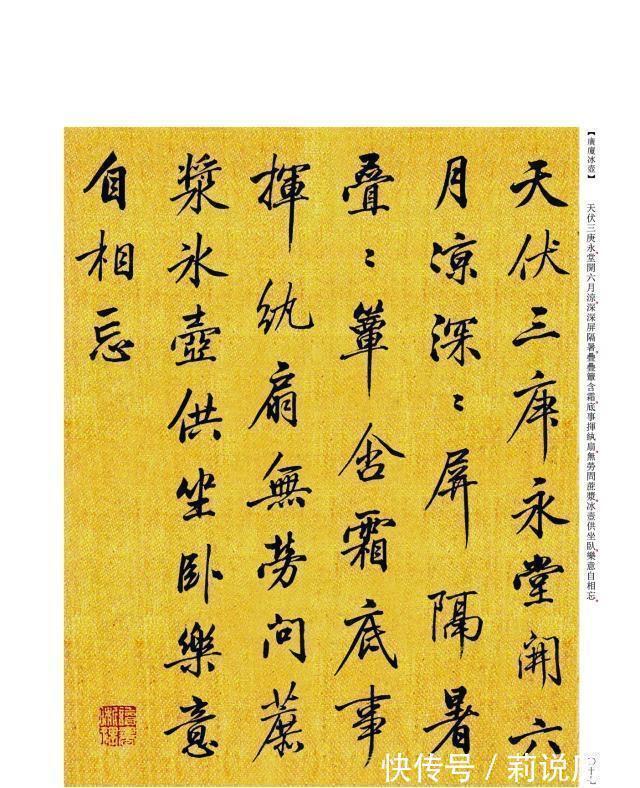 【廣廈冰壺】
天伏三庚永堂開六月涼深深屏隔暑疊疊簟含霜底事揮紈扇無勞問蔗漿冰壺供坐臥樂意自相忘
天伏三庚永堂開六
月涼深〻屏隔暑
疊〻簟含霜底事
揮紈扇無勞問蔗
漿冰壺供坐卧樂意
自相忘
快传号 / 莉说